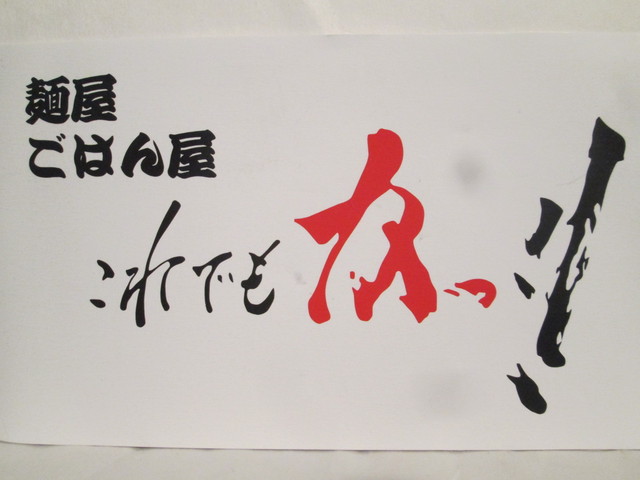 麺屋
ごはん屋
これでもかっ!